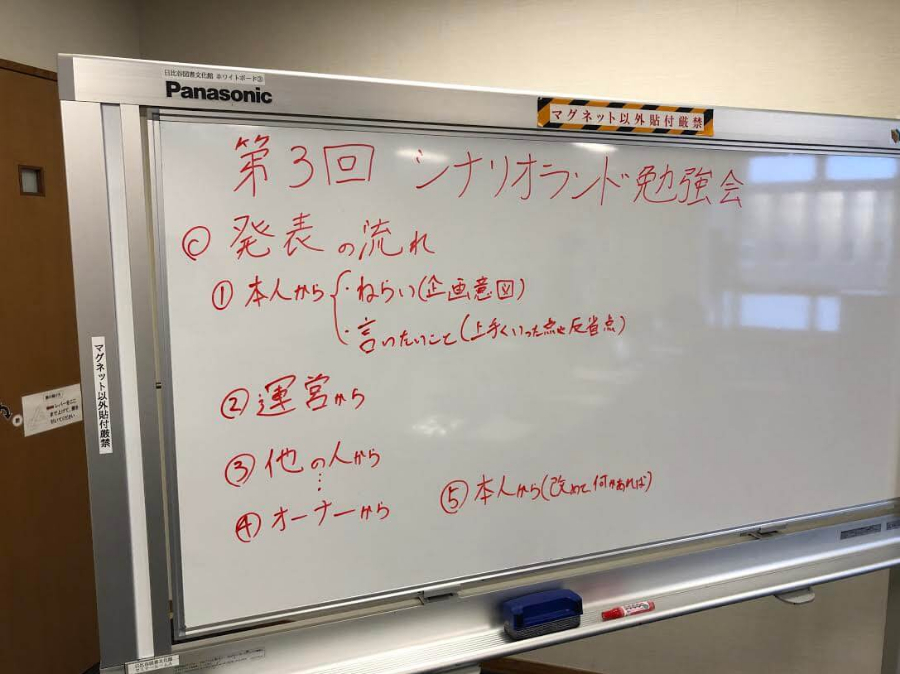 日比谷図書文化館 ホワイトボード③
Panasonic
マグネット以外貼付厳禁
第3回 シナリオランド勉強会
◎ 発表の流れ
① 本人から { ・ねらい(企画意図)
・言いたいこと(上手くいった点や反省点)
② 運営から
③ 他の人から
⋮
④ オーナーから
⑤ 本人から(改めて何かあれば)
マグネット以外貼付厳禁
日比谷図書文化館